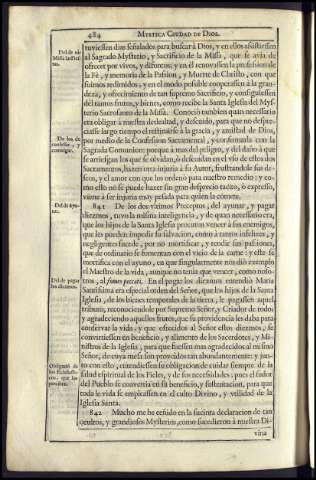 484 MYSTICA CIUDAD DE DIOS.
tuviessen dias señalados para buscar à Dios, y en ellos assistiessen
al Sagrado Mysterio, y Sacrificio de la Missa, que se avia de
ofrecer por vivos, y difuntos; y en èl renovassen la profession de
la Fè, y memoria de la Passion, y Muerte de Christo, con que
fuimos redimidos, y en el modo possible cooperassen à la grandeza,
y ofrecimiento de tan supremo Sacrificio, y consiguiessen
del tantos frutos, y bienes, como recibe la Santa Iglesia del Mysterio
Sacrosanto de la Missa. Conociò tambien quan necessario
era obligar à nuestra deslealtad, y descuido, para que no despreciasse
largo tiempo el restituirse à la gracia, y amistad de Dios,
por medio de la Confession Sacramental, y confirmarla con la
Sagrada Comunion: porque à mas del peligro, y del daño à que
se arriesgan los que se olvidan, ò descuidan en el vso de estos dos
Sacramentos, hazen otra injuria à su Autor, frustrandole sus deseos,
y el amor con que los ordenò para nuestro remedio; y como
esto no se puede hazer sin gran desprecio tacito, ò expresso,
viene à ser injuria muy pesada para quien la comete.
841 De los dos vltimos Preceptos, del ayunar, y pagar
diezmos, tuvo la misma inteligencia, y de quan necessario era,
que los hijos de la Santa Iglesia procuren vencer à sus enemigos,
que les pueden impedir su salvacion, como à tantos infelices, y
negligentes sucede, por no mortificar, y rendir sus passiones,
que de ordinario se fomentan con el vicio de la carne: y este se
mortifica con el ayuno, en que singularmente nos diò exemplo
el Maestro de la vida, aunque no tenia que vencer, como nosotros,
al fomes peccati. En el pagar los diezmos entendiò Maria
Santissima era especial orden del Señor, que los hijos de la Santa
Iglesia, de los bienes temporales de la tierra, le pagassen aquel
tributo, reconociendole por Supremo Señor, y Criador de todo;
y agradeciendo aquellos frutos, que su providencia les daba para
conservar la vida: y que ofrecidos al Señor estos diezmos, se
convirtiessen en beneficio, y alimento de los Sacerdotes, y Ministros
de la Iglesia, para que fuessen mas agradecidos al mismo
Señor, de cuya mesa son proveidos tan abundantemente; y junto
con esto, entendiessen su obligacion de cuidar siempre de la
salud espiritual de los Fieles, y de sus necessidades: pues el sudor
del Pueblo se convertia en su beneficio, y sustentacion, para que
toda la vida se empleassen en el culto Divino, y vtilidad de la
Iglesia Santa.
842 Mucho me he ceñido en la sucinta declaracion de tan
ocultos, y grandiosos Mysterios, como sucedieron à nuestra Di-
vina
Del de oir
Missa
De los de
confessar, y
comulgar.
Del de ayunar.
Del de pagar
los diezmos.
Obligacion de
los Eclesiasticos,